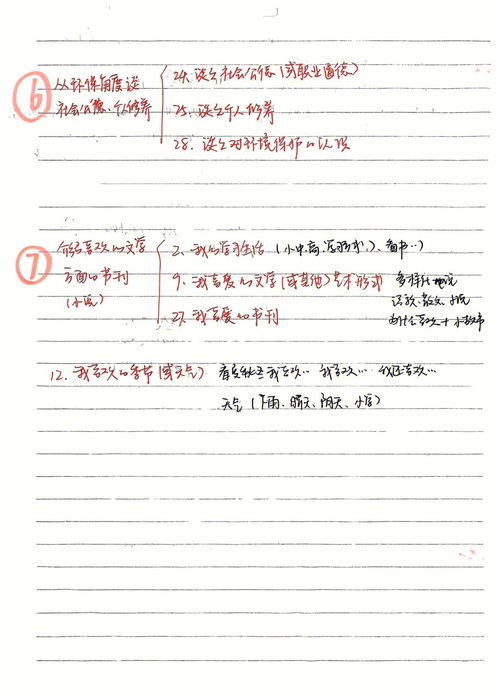 ⑥ 从环保角度谈
社会公德、个人修养
24. 谈谈社会公德(或职业道德)
25. 谈谈个人修养
28. 谈谈对环境保护的认识
⑦ 介绍喜欢的文学
方面的书刊
(小说)
2. 我的学习生活 (小中高、学习方式、)、看书…)
9. 我喜爱的文学(或其他)艺术形式 多样性
诗歌、散文、小说
为什么喜欢 + 小故事
27. 我喜爱的书刊
12. 我喜欢的季节(或天气) 春夏秋冬我喜欢… 我喜欢… 我还喜欢…
天气 (下雨、晴天、阴天、小雪)